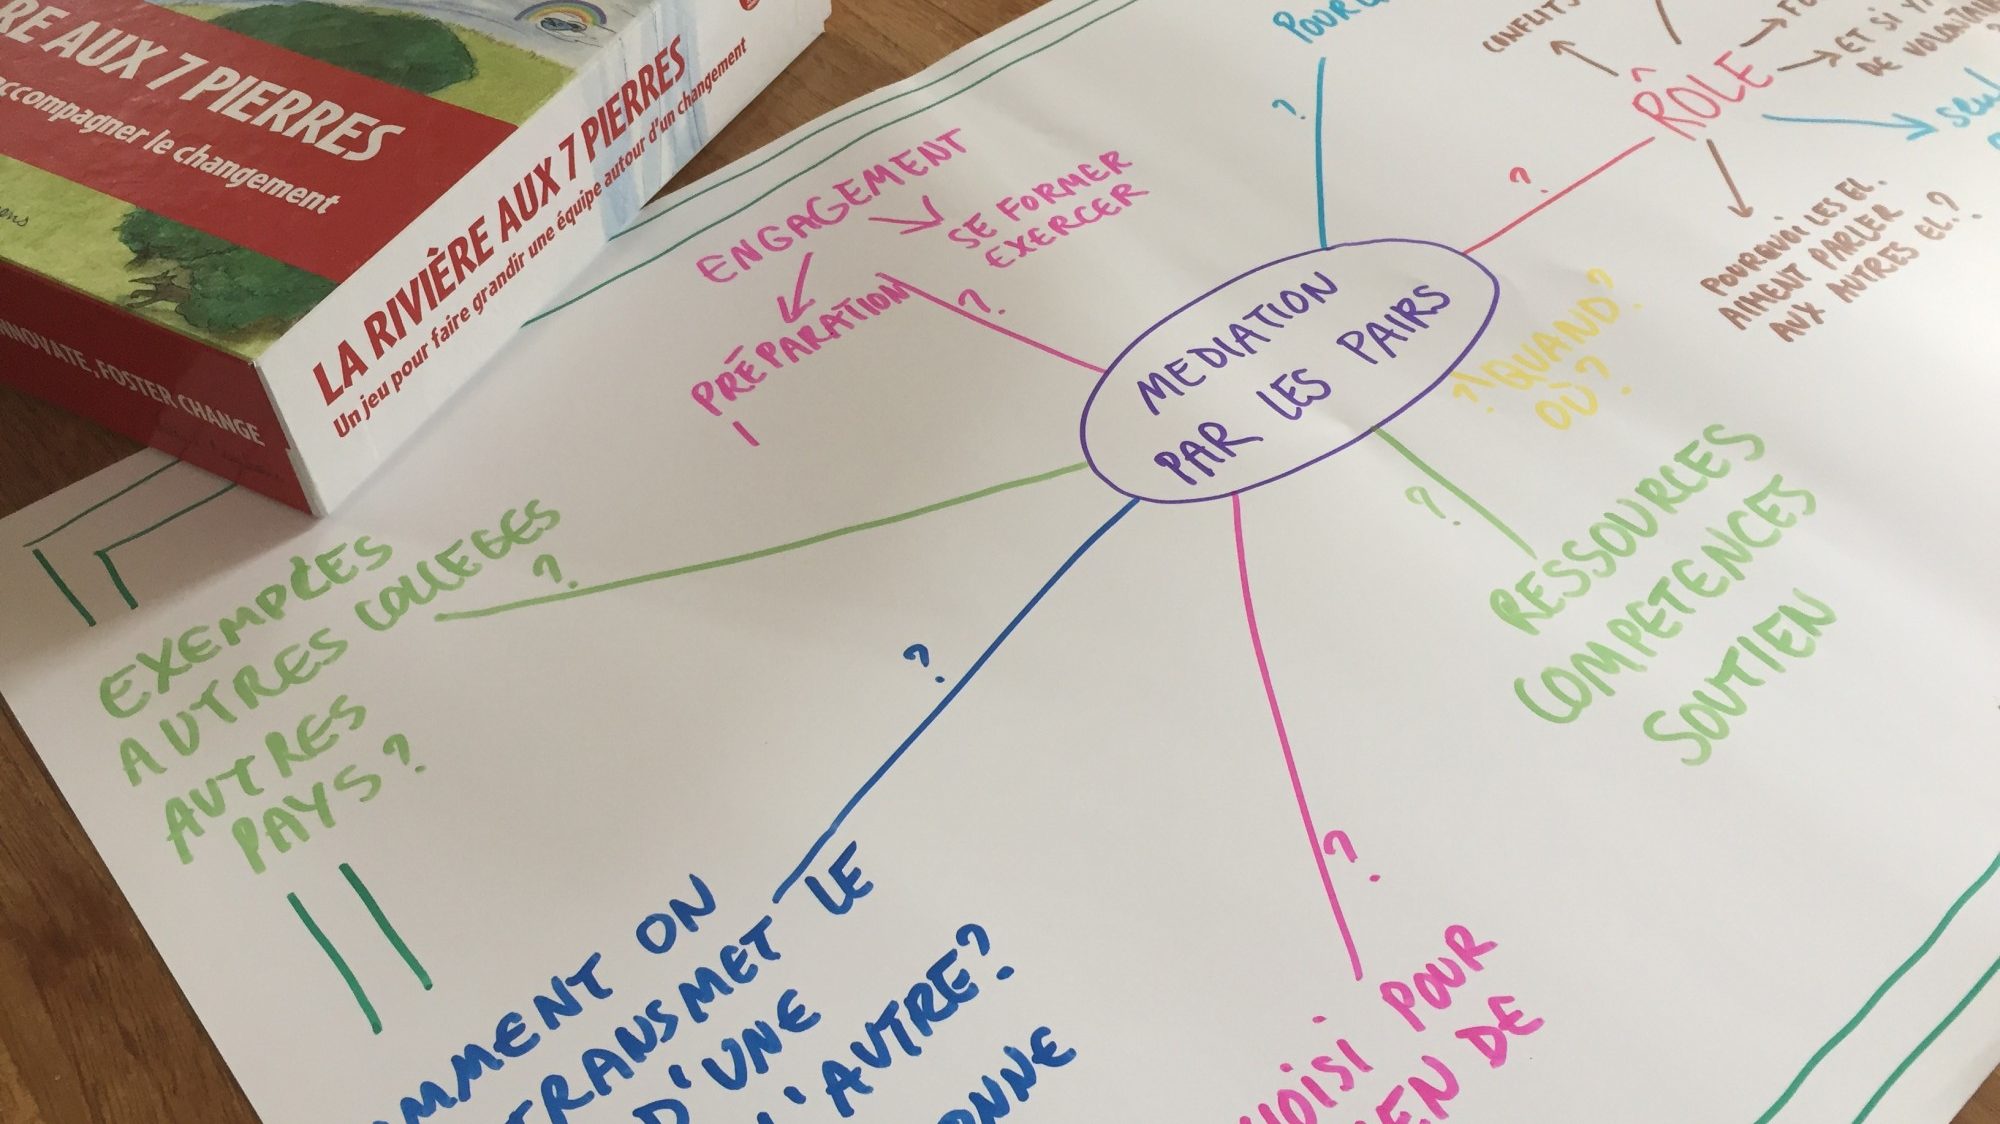 RE AUX 7 PIERRES
accompagner le changement
LA RIVIÈRE AUX 7 PIERRES
Un jeu pour faire grandir une équipe autour d'un changement
INNOVATE, FOSTER CHANGE
MEDIATION
PAR LES PAIRS
?
CONFLITS
RÔLE
?
ET SI Y
DE
POURQUOI LES EL.
AIMENT PARLER
AUX AUTRES EL.?
ENGAGEMENT
SE FORMER
EXERCER
PRÉPARATION
?
? QUAND?
OÙ?
?
RESSOURCES
COMPETENCES
SOUTIEN
EXEMPLES
AUTRES COLLEGES
?
AUTRES
PAYS?
?
MMENT ON
TRANSMET LE
D'UNE
L'AUTRE?
ONNE
?
HOISI POUR
EN DE